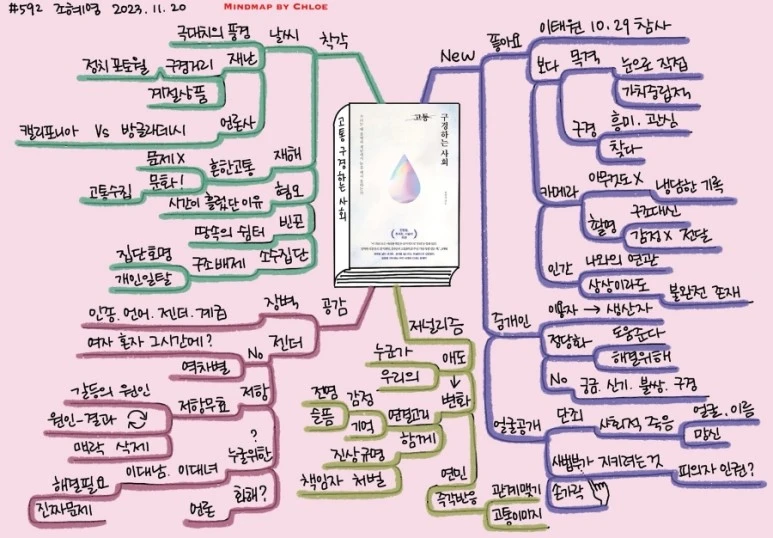 #592 조혜영 2023.11.20
MINDMAP BY CHLOE
New
좋아요
이태원 10.29 참사
보다
목격
눈으로 직접
가치중립적
구경
흥미.관심
찾다
카메라
아무감도X
냉담한 기록
촬영
구조대신
감정X 전달
인간
나와의 연관
상상이라도
불완전 존재
줌개인
이용자 → 생산자
정당화
도움준다
해결위해
No
궁금.신기.불쌍.구경
얼굴공개
단죄
사회적 죽음
얼굴.이름
망신
사법부가 지키려는것
피의자 인권?
손가락
저널리즘
애도
누군가
우리의
변화
연결고리
감정
전염
슬픔
기억
함께
진상규명
책임자 처벌
연민
즉각반응
관계맺기
고통이미지
공감
장벽
인종.언어.젠더.계급
젠더
No
여자 혼자 그시간에?
역차별
저항
저항무효
갈등의 원인
원인-결과
맥락 삭제
?
누굴위한
이대남.이대녀
해결필요
진짜문제
화해?
언론
착각
날씨
극대치의 풍경
재난
구경거리
정치 포토월
계절상품
언론사
캘리포니아 Vs 방글라데시
재해
흔한고통
문제X
문화!
고통수집
혐오
시간이 흘렀단 이유
빈곤
땅속의 쉼터
소수집단
구조배제
집단호명
개인일탈
고통 구경하는 사회
고통 구경하는 사회